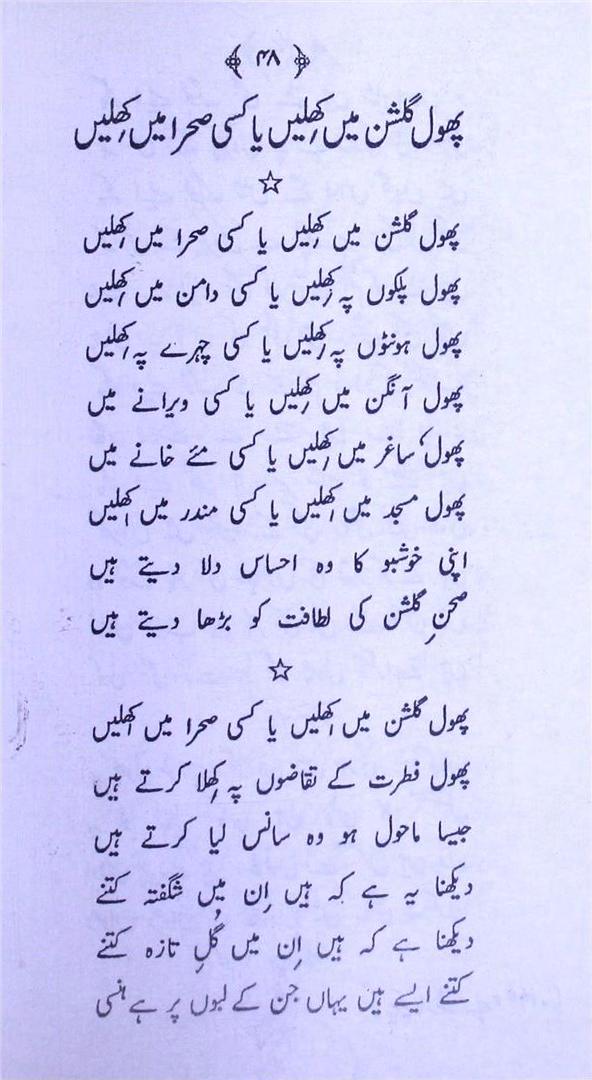 ۴۸
پھول گلشن میں کِھلیں یا کسی صحرا میں کِھلیں
☆
پھول گلشن میں کِھلیں یا کسی صحرا میں کِھلیں
پھول پلکوں پہ کِھلیں یا کسی دامن میں کِھلیں
پھول ہونٹوں پہ کِھلیں یا کسی چہرے پہ کِھلیں
پھول آنگن میں کِھلیں یا کسی ویرانے میں
پھول ساغر میں کِھلیں یا کسی مئے خانے میں
پھول مسجد میں کِھلیں یا کسی مندر میں کِھلیں
اپنی خوشبو کا وہ احساس دلا دیتے ہیں
صحنِ گلشن کی لطافت کو بڑھا دیتے ہیں
☆
پھول گلشن میں کِھلیں یا کسی صحرا میں کِھلیں
پھول فطرت کے تقاضوں پہ کِھلا کرتے ہیں
جیسا ماحول ہو وہ سانس لیا کرتے ہیں
دیکھنا یہ ہے کہ ہیں اِن میں شگفتہ کتنے
دیکھنا ہے کہ ہیں اِن میں گُلِ تازہ کتنے
کتنے ایسے ہیں یہاں جن کے لبوں پر ہے ہنسی